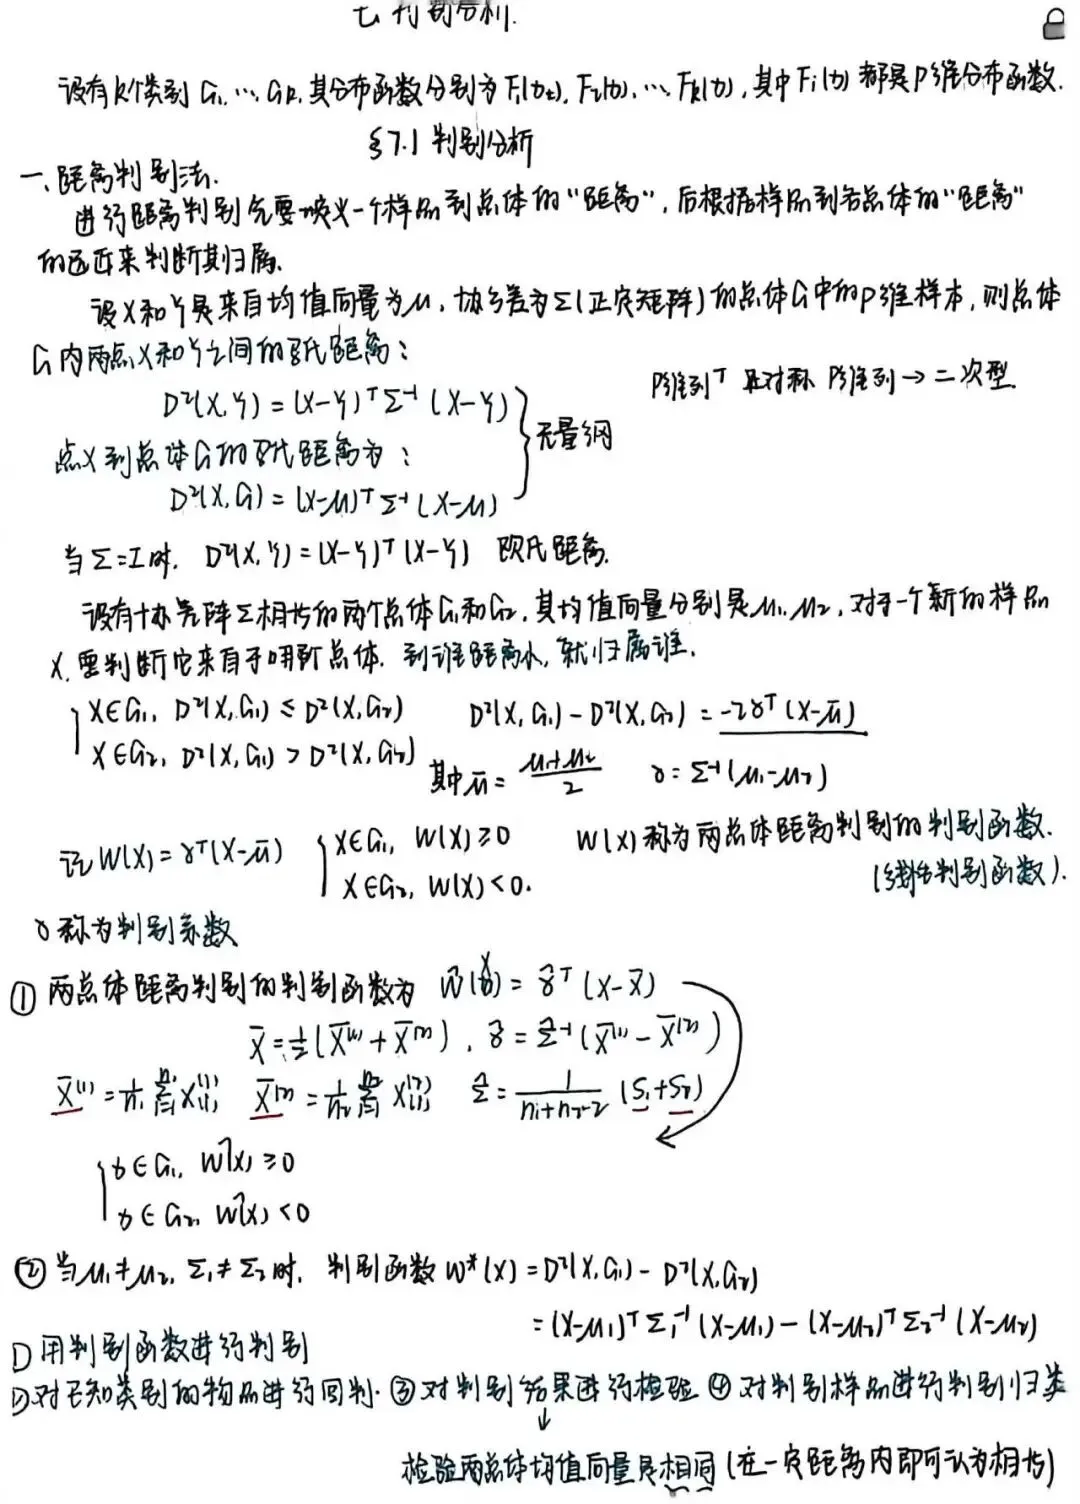 七、判别分析.
设有k个类别 G₁, …, Gk, 其分布函数分别为 F₁(x), F₂(x), …, Fk(x), 其中 Fi(x) 都是P维分布函数.
§7.1 判别分析
一、距离判别法.
进行距离判别先要定义一个样品到总体的“距离”, 后根据样品到各总体的“距离”
的远近来判断其归属.
设X和Y是来自均值向量为μ, 协方差为Σ(正定矩阵)的总体G中的P维样本, 则总体
G内两点X和Y之间的马氏距离:
D²(X,Y) = (X-Y)ᵀΣ⁻¹(X-Y)
P维列ᵀ 且对称 P维列→二次型
无量纲
点X到总体G的马氏距离为:
D²(X,G) = (X-μ)ᵀΣ⁻¹(X-μ)
当Σ=I时, D²(X,Y) = (X-Y)ᵀ(X-Y) 欧氏距离.
设有协差阵Σ相等的两个总体G₁和G₂, 其均值向量分别是μ₁, μ₂, 对于一个新的样品
X, 要判断它来自于哪个总体. 到谁距离小, 就归属谁.
{ X∈G₁, D²(X,G₁) ≤ D²(X,G₂) D²(X,G₁) - D²(X,G₂) = -2γᵀ(X-μ̄)
X∈G₂, D²(X,G₁) > D²(X,G₂) 其中 μ̄ = (μ₁+μ₂)/2 γ = Σ⁻¹(μ₁-μ₂)
记 W(X) = γᵀ(X-μ̄) { X∈G₁, W(X) ≥ 0 W(X)称为两总体距离判别的判别函数.
X∈G₂, W(X) < 0. (线性判别函数).
γ称为判别系数
① 两总体距离判别的判别函数为 Ŵ(X) = γ̂ᵀ(X-X̄)
X̄ = ½(X̄⁽¹⁾ + X̄⁽²⁾), γ̂ = Σ̂⁻¹(X̄⁽¹⁾ - X̄⁽²⁾)
X̄⁽¹⁾ = 1/n₁ Σ X₍ᵢ₎⁽¹⁾ X̄⁽²⁾ = 1/n₂ Σ X₍ᵢ₎⁽²⁾ Σ̂ = 1/(n₁+n₂-2) (S₁+S₂)
{ x∈G₁, Ŵ(x) ≥ 0
x∈G₂, Ŵ(x) < 0
② 当μ₁≠μ₂, Σ₁≠Σ₂时, 判别函数 W*(X) = D²(X,G₁) - D²(X,G₂)
= (X-μ₁)ᵀΣ₁⁻¹(X-μ₁) - (X-μ₂)ᵀΣ₂⁻¹(X-μ₂)
① 用判别函数进行判别
② 对已知类别的物品进行回判. ③ 对判别结果进行检验 ④ 对判别样品进行判别归类
↓
检验两总体均值向量是相同 (在一定距离内即可认为相等)